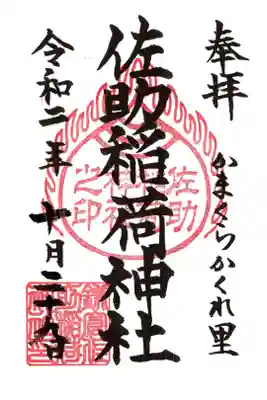 奉拝
かまくらかくれ里
佐助稲荷神社
令和二年 十月二十九日
佐助
之印